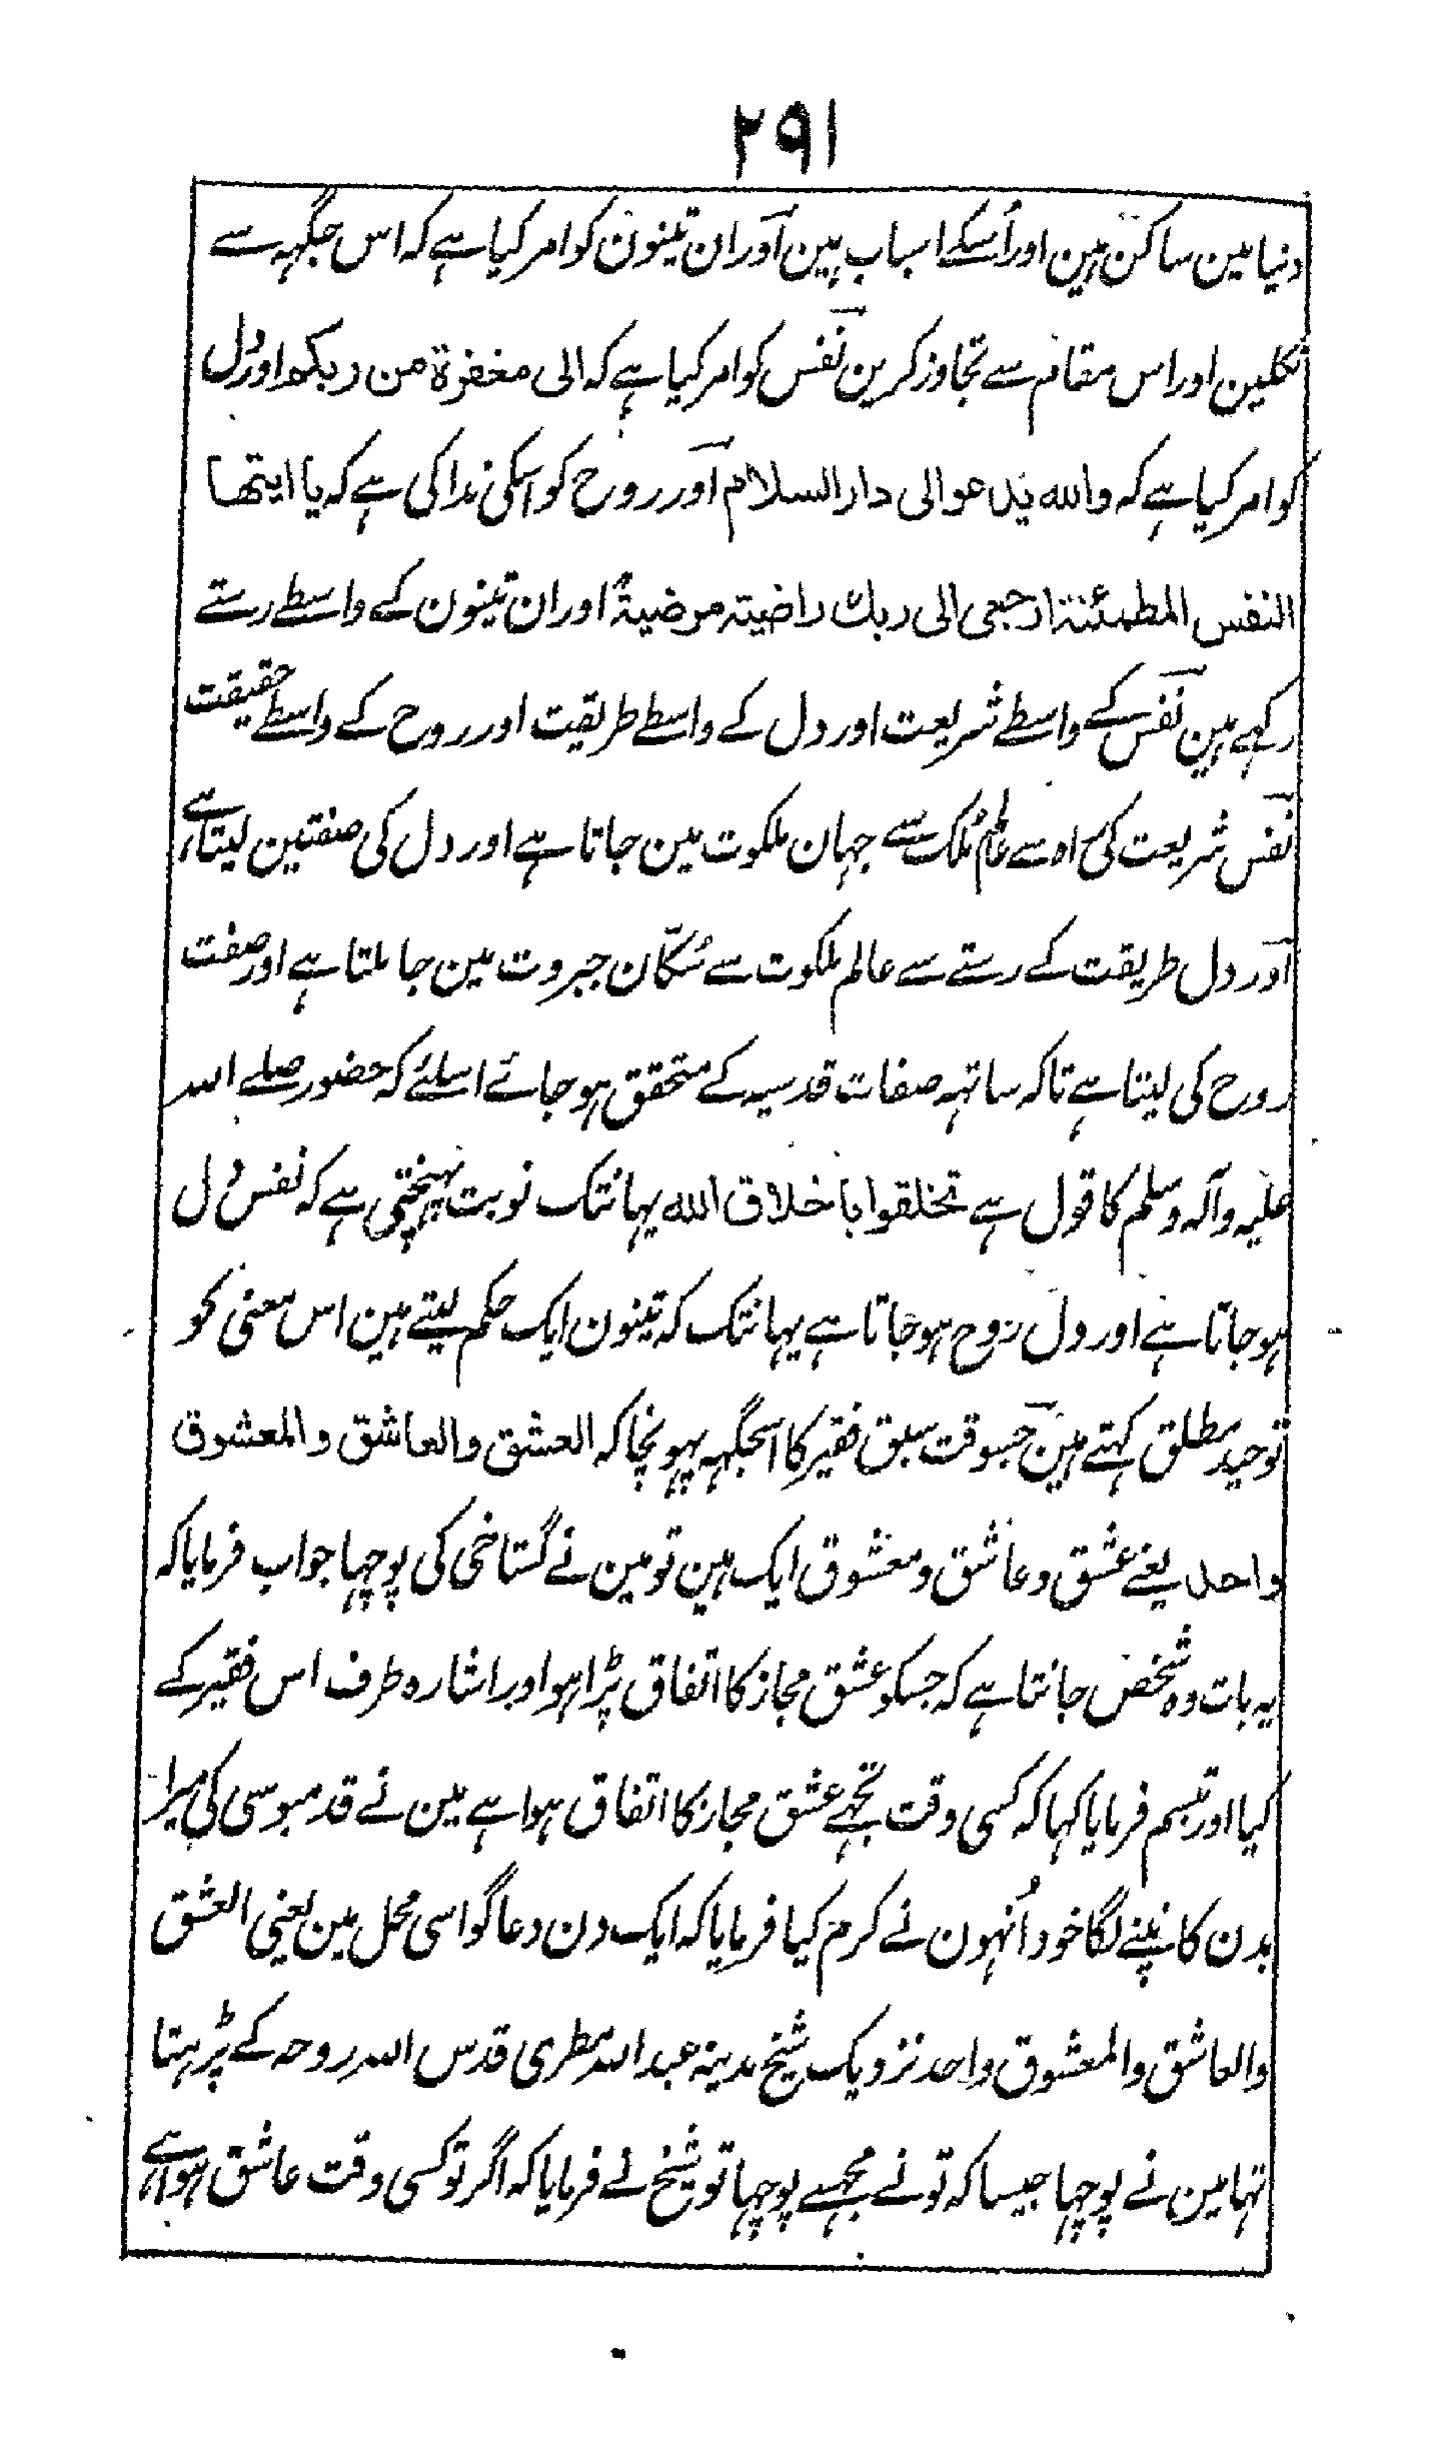 ۲۹۱
دنیا مین ساکن ہین اور اُسکے اسباب ہین اور ان تینون کو امر کیا ہے کہ اس جگہہ سے
نکلین اور اس مقام سے تجاوز کرین نفس کو امر کیا ہے کہ الی مغفرة من ربکم اور دل
کو امر کیا ہے کہ والله یدعوالی دار السلام اور روح کو اسکی ندا کی ہے کہ یا ایتها
النفس المطمئنة ارجعی الی ربك راضیته مرضیةً اور ان تینون کے واسطے رستے
رکہے ہین نفس کے واسطے شریعت اور دل کے واسطے طریقت اور روح کے واسطے حقیقت
نفس شریعت کی راہ سے عالم مُلک سے جہان ملکوت مین جاتا ہے اور دل کی صفتین لیتا ہے
اور دل طریقت کے رستے سے عالم ملکوت سے سُکّان جبروت مین جا ملتا ہے اور صفت
روح کی لیتا ہے تاکہ ساتہہ صفات قدسیہ کے متحقق ہو جائے اسلئے کہ حضور صلے اللہ
علیہ وآلہ وسلم کا قول ہے تخلقوا باخلاق الله یہانتک نوبت پہنچتی ہے کہ نفس دل
ہو جاتا ہے اور دل روح ہو جاتا ہے یہانتک کہ تینون ایک حکم لیتے ہین اس معنی کو
توحید مطلق کہتے ہین جسوقت سبق فقیر کا اسجگہہ پہونچا کہ العشق والعاشق والمعشوق
واحد یعنے عشق و عاشق و معشوق ایک ہین تو مین نے گستاخی کی پوچہا جواب فرمایا کہ
یہ بات وہ شخص جانتا ہے کہ جسکو عشق مجاز کا اتفاق پڑا ہو اور اشارہ طرف اس فقیر کے
کیا اور تبسم فرمایا کہا کہ کسی وقت تجہے عشق مجاز کا اتفاق ہوا ہے مین نے قدمبوسی کی میرا
بدن کانپنے لگا خود اُنہون نے کرم کیا فرمایا کہ ایک دن دعا گو اسی محل مین یعنی العشق
والعاشق والمعشوق واحد نزدیک شیخ مدینہ عبد اللہ مطری قدس اللہ روحہ کے پڑہتا
تہا مین نے پوچہا جیسا کہ تو نے مجہسے پوچہا تو شیخ نے فرمایا کہ اگر تو کسی وقت عاشق ہوا ہے